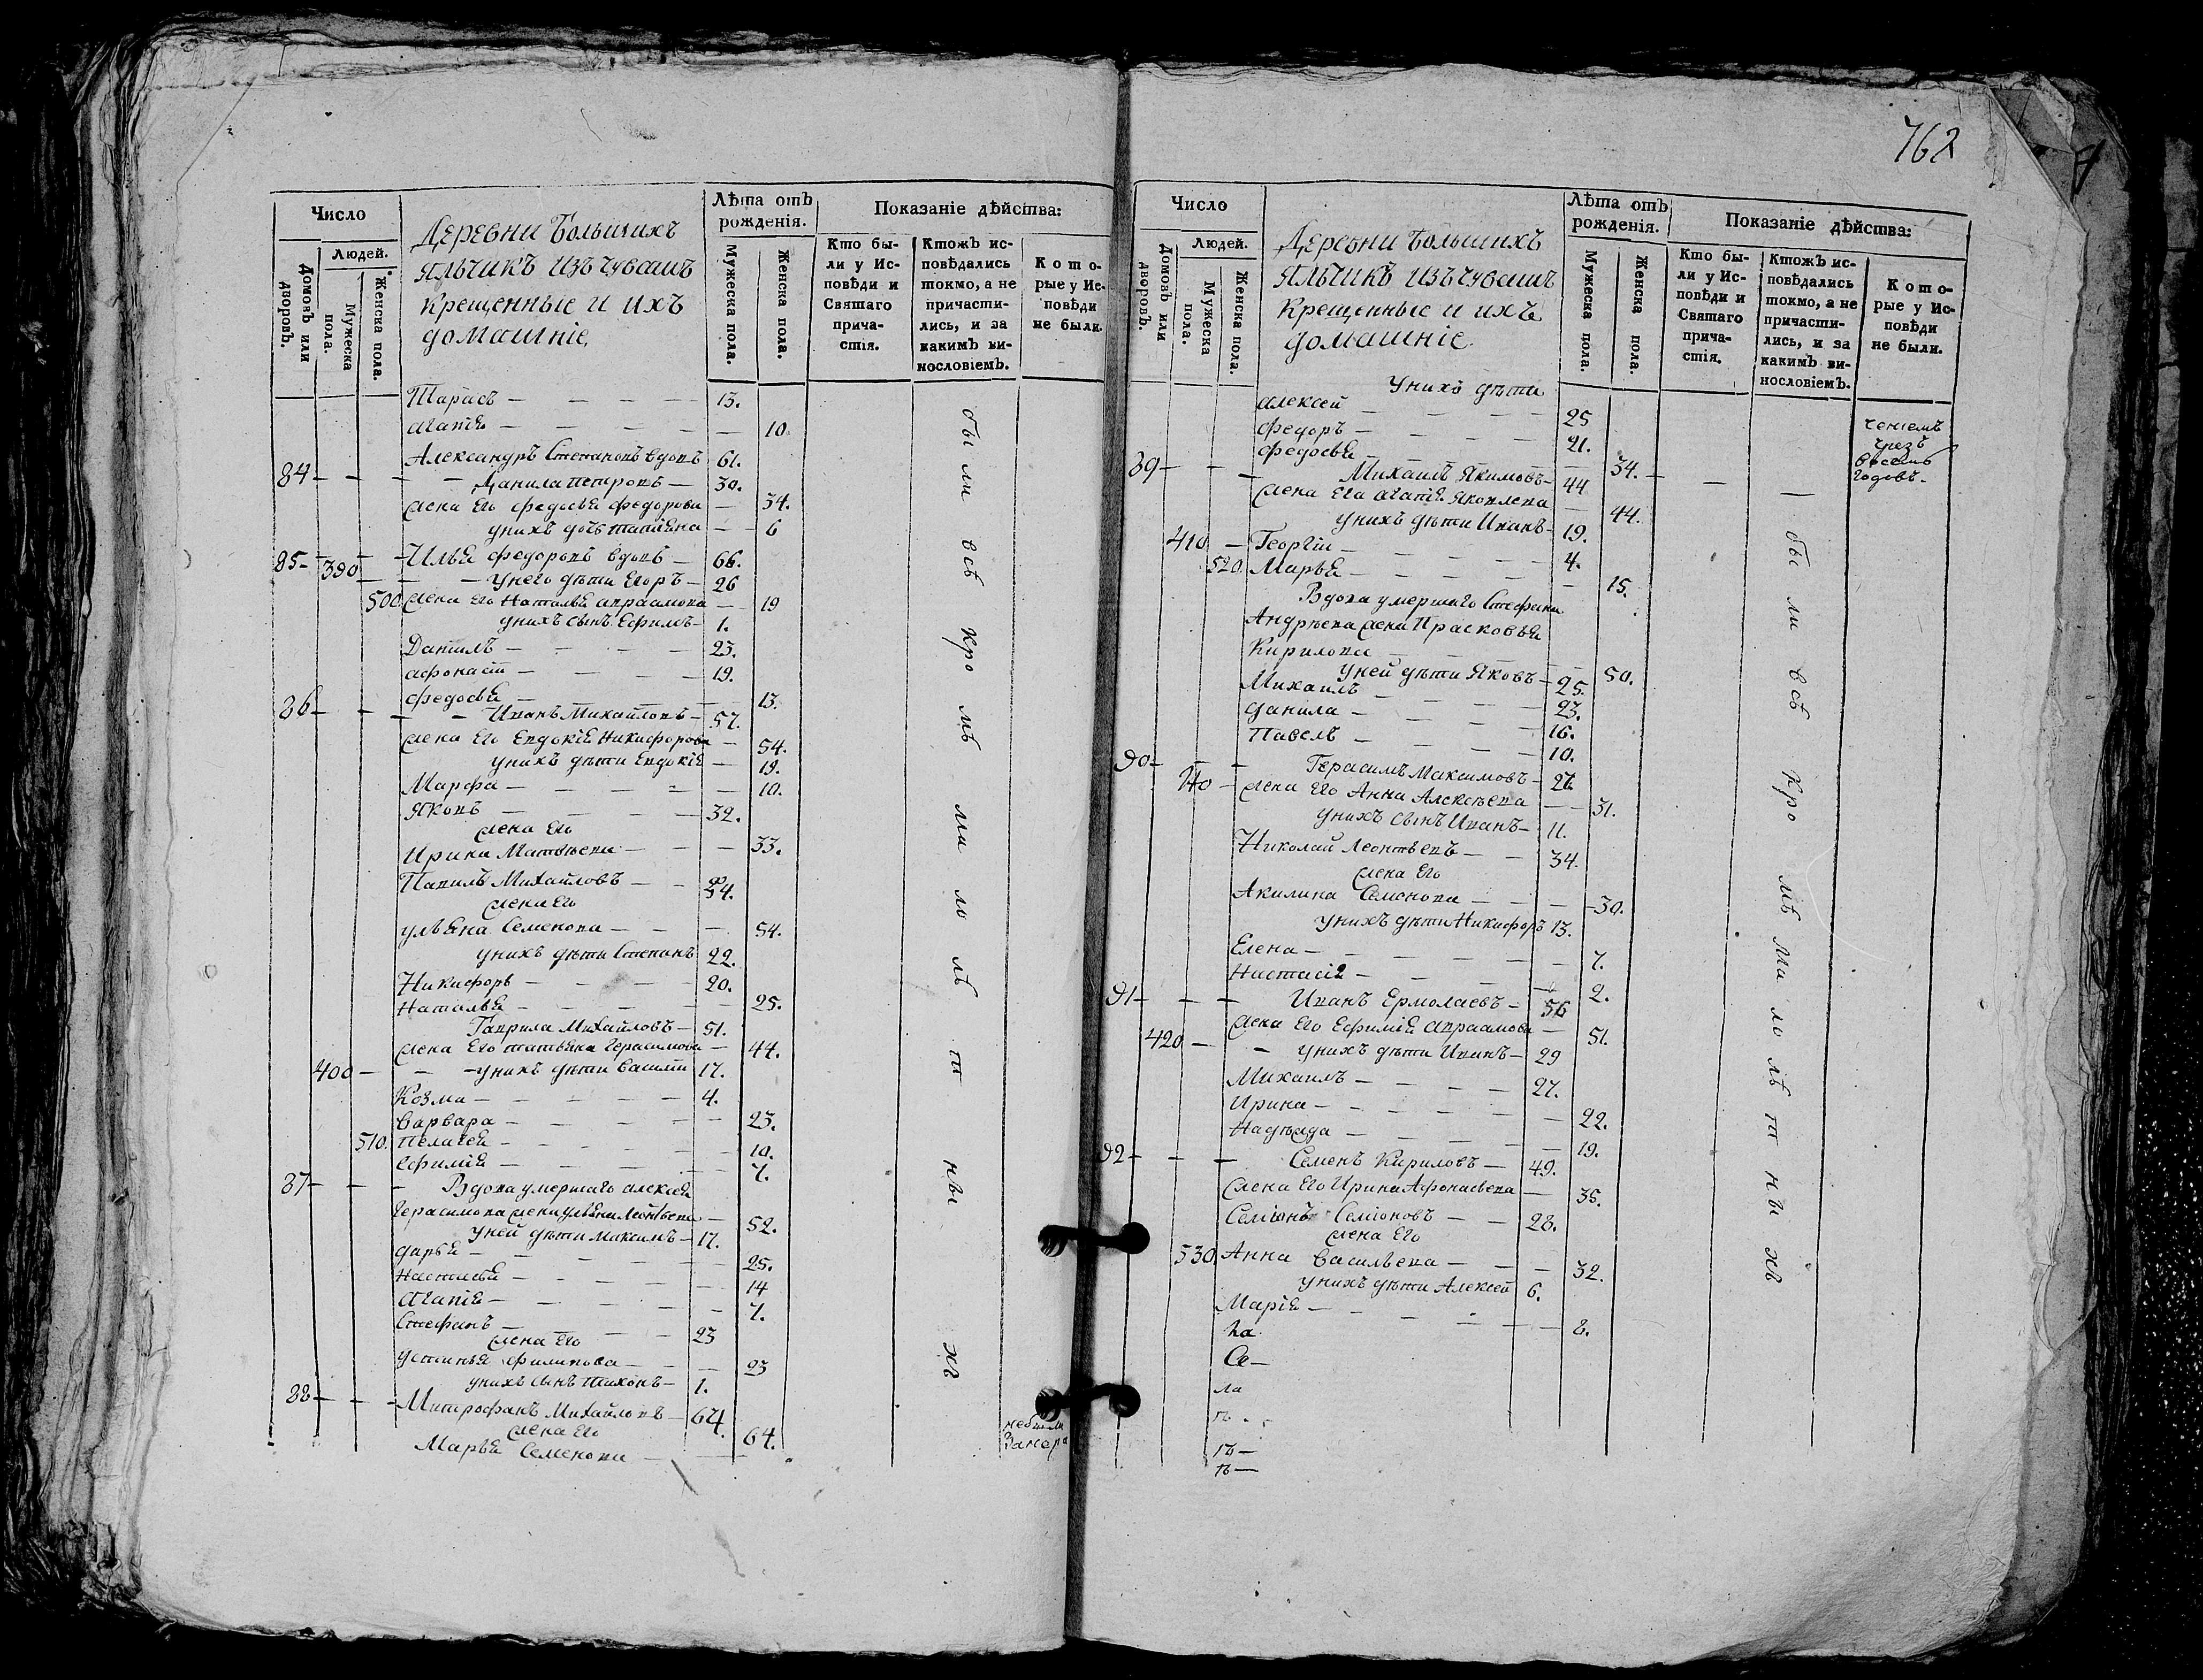 762
Число
Людей.
Домовъ или дворовъ.
Мужеска пола.
Женска пола.
Деревни Большихъ
Яльчикъ изъ чувашъ
крещенные и ихъ
домашніе.
Лѣта отъ рожденія.
Мужеска пола.
Женска пола.
Показаніе дѣйства:
Кто бы-
ли у Ис-
повѣди и
Святаго
прича-
стія.
Ктожъ ис-
повѣдались
токмо, а не
причасти-
лись, и за
какимъ ви-
нословіемъ.
Кото-
рые у Ис-
повѣди
не были.
Тарасъ — 13.
Агапія — 10.
Александръ Степановъ вдовъ 61.
84 — Данила Петровъ — 30.
жена Его Федосья Федорова — 34.
у нихъ дочь Татіяна — 6
85 — 390 — Илья Федоровъ вдовъ — 66.
У него дѣти Егоръ — 26
500. жена Его Наталья Авраамова — 19
у нихъ сынъ Ефимъ — 1.
Данилъ — 23.
Афонасій — 19.
Федосья — 13.
86 — Иванъ Михайловъ — 57.
жена Его Евдокія Никифорова — 54.
у нихъ дѣти Евдокія — 19.
Марфа — 10.
Яковъ — 32.
жена Его
Ирина Матвѣева — 33.
Павилъ Михайловъ — 34.
жена Его
Ульяна Семенова — 54.
у нихъ дѣти Степанъ 22.
Никифоръ — 20.
Наталья — 25.
Гаврила Михайловъ — 51.
жена Его Татьяна Герасимова — 44.
400 — у нихъ дѣти Василій 17.
Козма — 4.
Варвара — 23.
510. Пелагея — 10.
Ефимія — 7.
87 — Вдова умершаго Алексея
Герасимова жена Ульяна Леонтьева — 52.
у ней дѣти Максимъ — 17.
Дарья — 25.
Настасья — 14
Агапія — 7.
Стефанъ — 23
жена Его
Устинья Филипова — 23
у нихъ сынъ Тихонъ — 1.
88 — Митрофанъ Михайловъ — 64.
жена Его
Марья Семенова — 64.
бы ли всѣ кро мѣ ма ло лѣ т ны хъ
небыли
Занера
Число
Людей.
Домовъ или дворовъ.
Мужеска пола.
Женска пола.
Деревни Большихъ
Яльчикъ изъ чувашъ
крещенные и ихъ
домашніе.
Лѣта отъ рожденія.
Мужеска пола.
Женска пола.
Показаніе дѣйства:
Кто бы-
ли у Ис-
повѣди и
Святаго
прича-
стія.
Ктожъ ис-
повѣдались
токмо, а не
причасти-
лись, и за
какимъ ви-
нословіемъ.
Кото-
рые у Ис-
повѣди
не были.
У нихъ дѣти
Алексей — 25
Федоръ — 21.
Федосья — 34.
ченіемъ
чрезъ
восемь
годовъ.
89 — Михаилъ Якимовъ — 44
жена Его Агапія Яковлева — 44.
у нихъ дѣти Иванъ — 19.
410 — Георгій — 4.
520. Марья — 15.
Вдова умершаго Стефана
Андрѣева жена Прасковья
Кирилова — 50.
у ней дѣти Яковъ — 25.
Михаилъ — 23.
Данила — 16.
Павелъ — 10.
90 — Герасимъ Максимовъ — 27.
жена Его Анна Алексѣева — 31.
у нихъ сынъ Иванъ — 11.
Николай Леонтьевъ — 34.
жена Его
Акилина Семенова — 30.
у нихъ дѣти Никифоръ 13.
Елена — 7.
Настасія — 2.
91 — Иванъ Ермолаевъ — 56
жена Его Ефимія Авраамова — 51.
420 — у нихъ дѣти Иванъ — 29
Михаилъ — 27.
Ирина — 22.
Надѣжда — 19.
92 — Семенъ Кириловъ — 49.
жена Его Ирина Афонасьева — 35.
Семіонъ Семіоновъ — 28.
жена Его
530. Анна Васильева — 32.
у нихъ дѣти Алексей 6.
Марія — 8.
бы ли всѣ кро мѣ ма ло лѣ т ны хъ